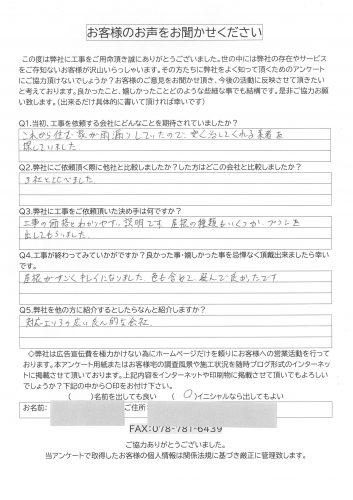 お客様のお声をお聞かせください
この度は弊社に工事をご用命頂き誠にありがとうございました。世の中には弊社の存在やサービス
をご存知ないお客様が沢山いらっしゃいます。その方たちに弊社をよく知って頂くためのアンケート
にご協力頂けないでしょうか？お客様のご意見をお聞かせ頂き、今後の活動に反映させて頂きたい
と考えております。良かったこと、嬉しかったことどのような些細な事でも結構です。是非ご協力お願
い致します。（出来るだけ具体的に書いて頂ければ幸いです）
Q1.当初、工事を依頼する会社にどんなことを期待されていましたか？
これから住む家が雨漏りしていたので、安く治してくれる業者を
探していました
Q2.弊社にご依頼頂く際に他社と比較しましたか？した方はどこの会社と比較しましたか？
3社と比べました
Q3.弊社に工事をご依頼頂いた決め手は何ですか？
工事の価格とわかりやすい説明です。屋根の種類もいくつか、プランを
出してもらいました。
Q4.工事が終わってみていかがですか？良かった事・嬉しかった事を忌憚なく頂戴出来ましたら幸い
です。
屋根がすごくキレイになりました。色も含めて、選んで良かったです
Q5.弊社を他の方に紹介するとしたらなんと紹介しますか？
対応エリアの広い良心的な会社
◇弊社は広告宣伝費を極力かけない為にホームページだけを頼りにお客様への営業活動を行って
おります。本アンケート用紙またはお客様宅の調査風景や施工状況を随時ブログ形式のインターネッ
トに掲載させて頂いております。上記内容をインターネットや印刷物に掲載させて頂いてもよろしい
でしょうか？下記の中から〇印をお付け下さい。
（　）名前を出しても良い （○）イニシャルなら出してもよい
お名前: ご住所
FAX:078-781-6439
ご協力ありがとうございました。
当アンケートで取得したお客様の個人情報は関係法規に基づき厳正に管理致します。